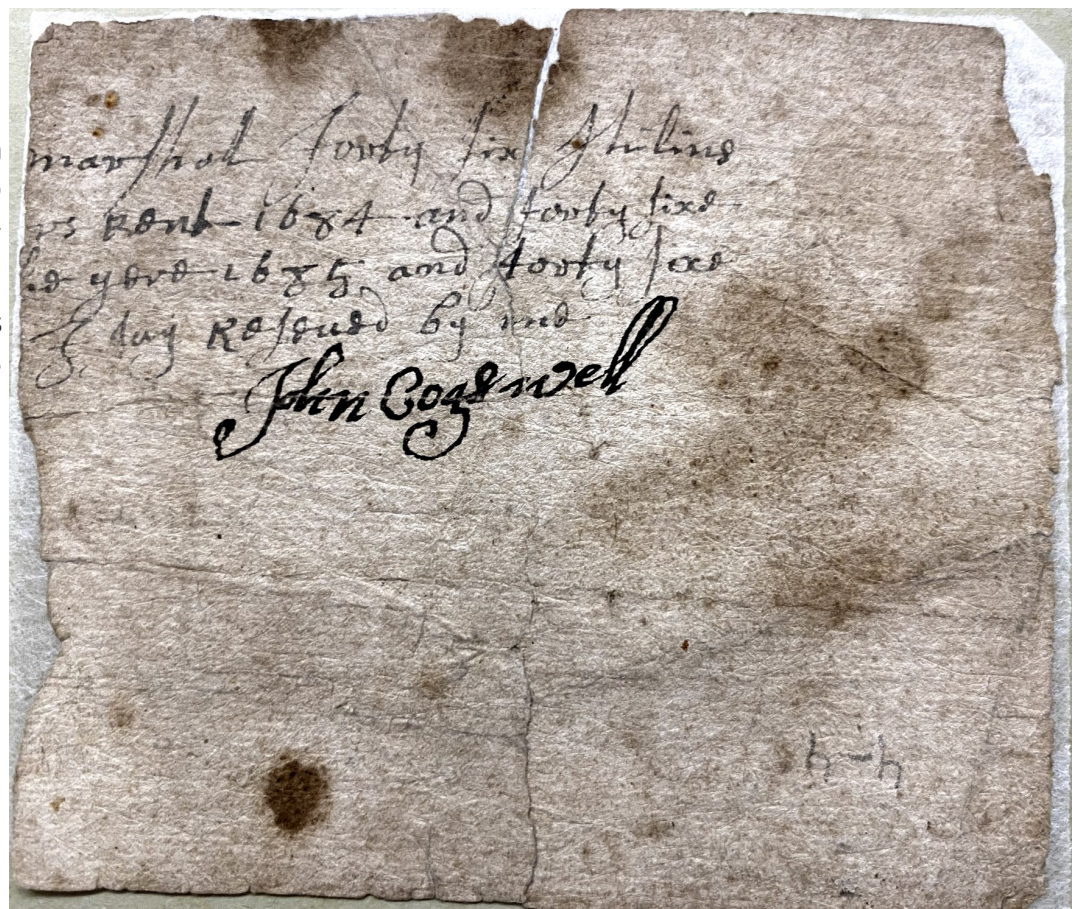 marshal forty six shilins
rs Rent 1684 and forty sixe
he yere 1685 and forty sixe
day Reseued by me
John Cogswell
h-h